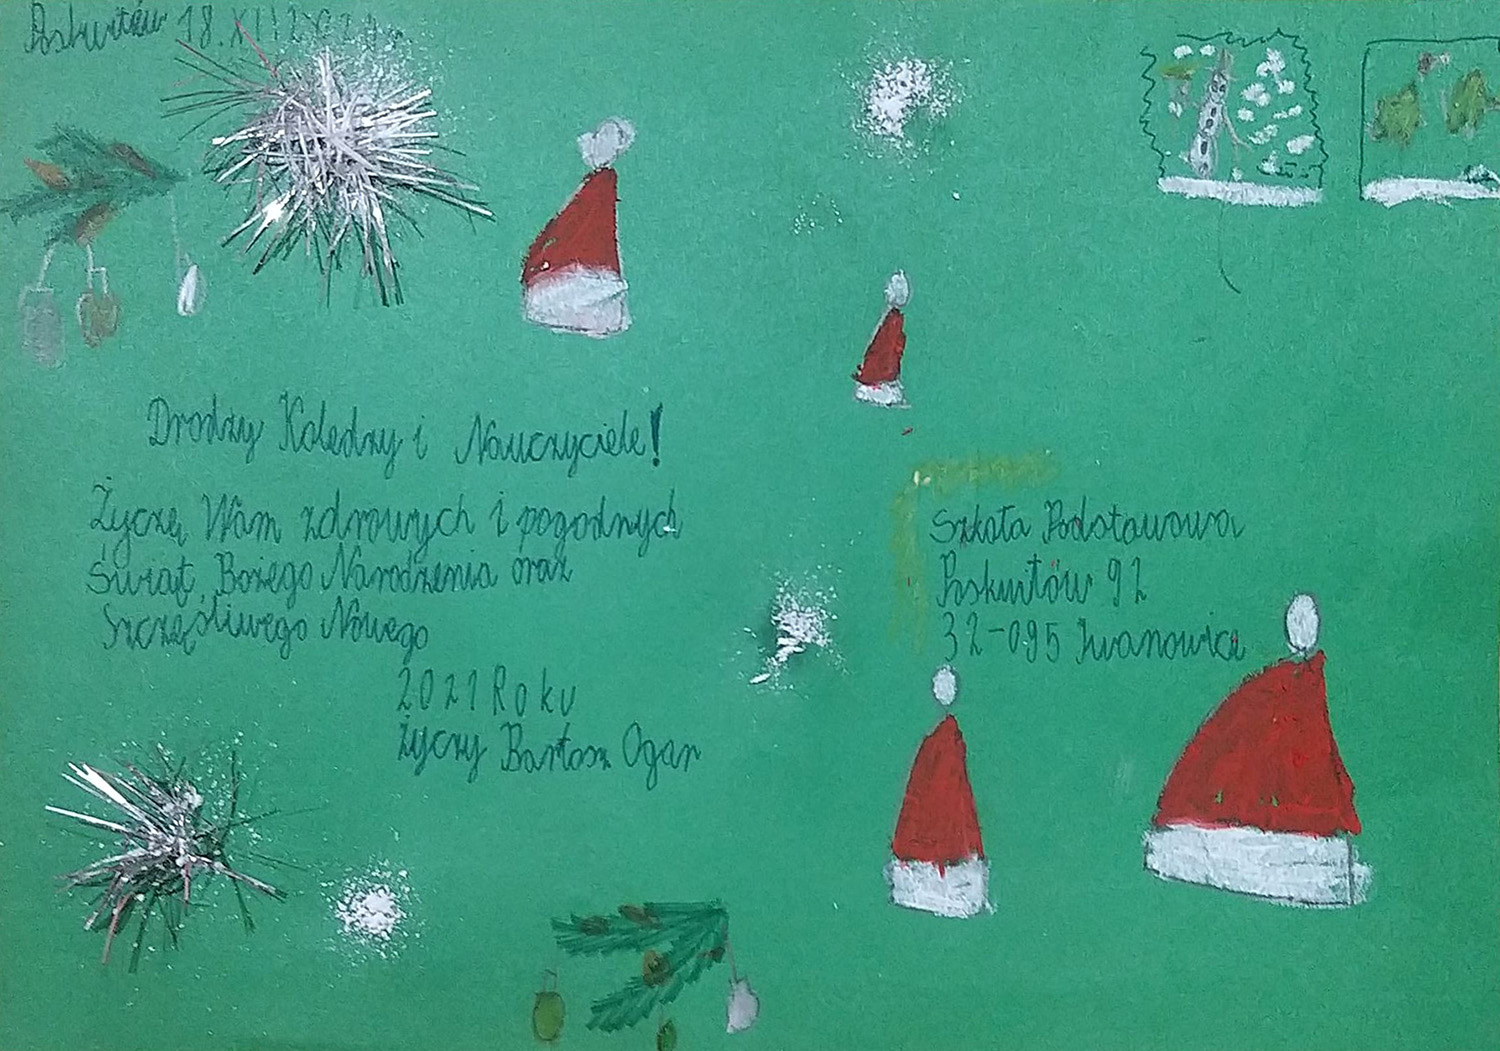 Poskwitów 18.XII 2020r.
Drodzy Koledzy i Nauczyciele!
Życzę Wam zdrowych i pogodnych
Świąt, Bożego Narodzenia oraz
Szczęśliwego Nowego
2021 Roku
Życzy Bartosz Ogar
Szkoła Podstawowa
Poskwitów 92
32-095 Iwanowice